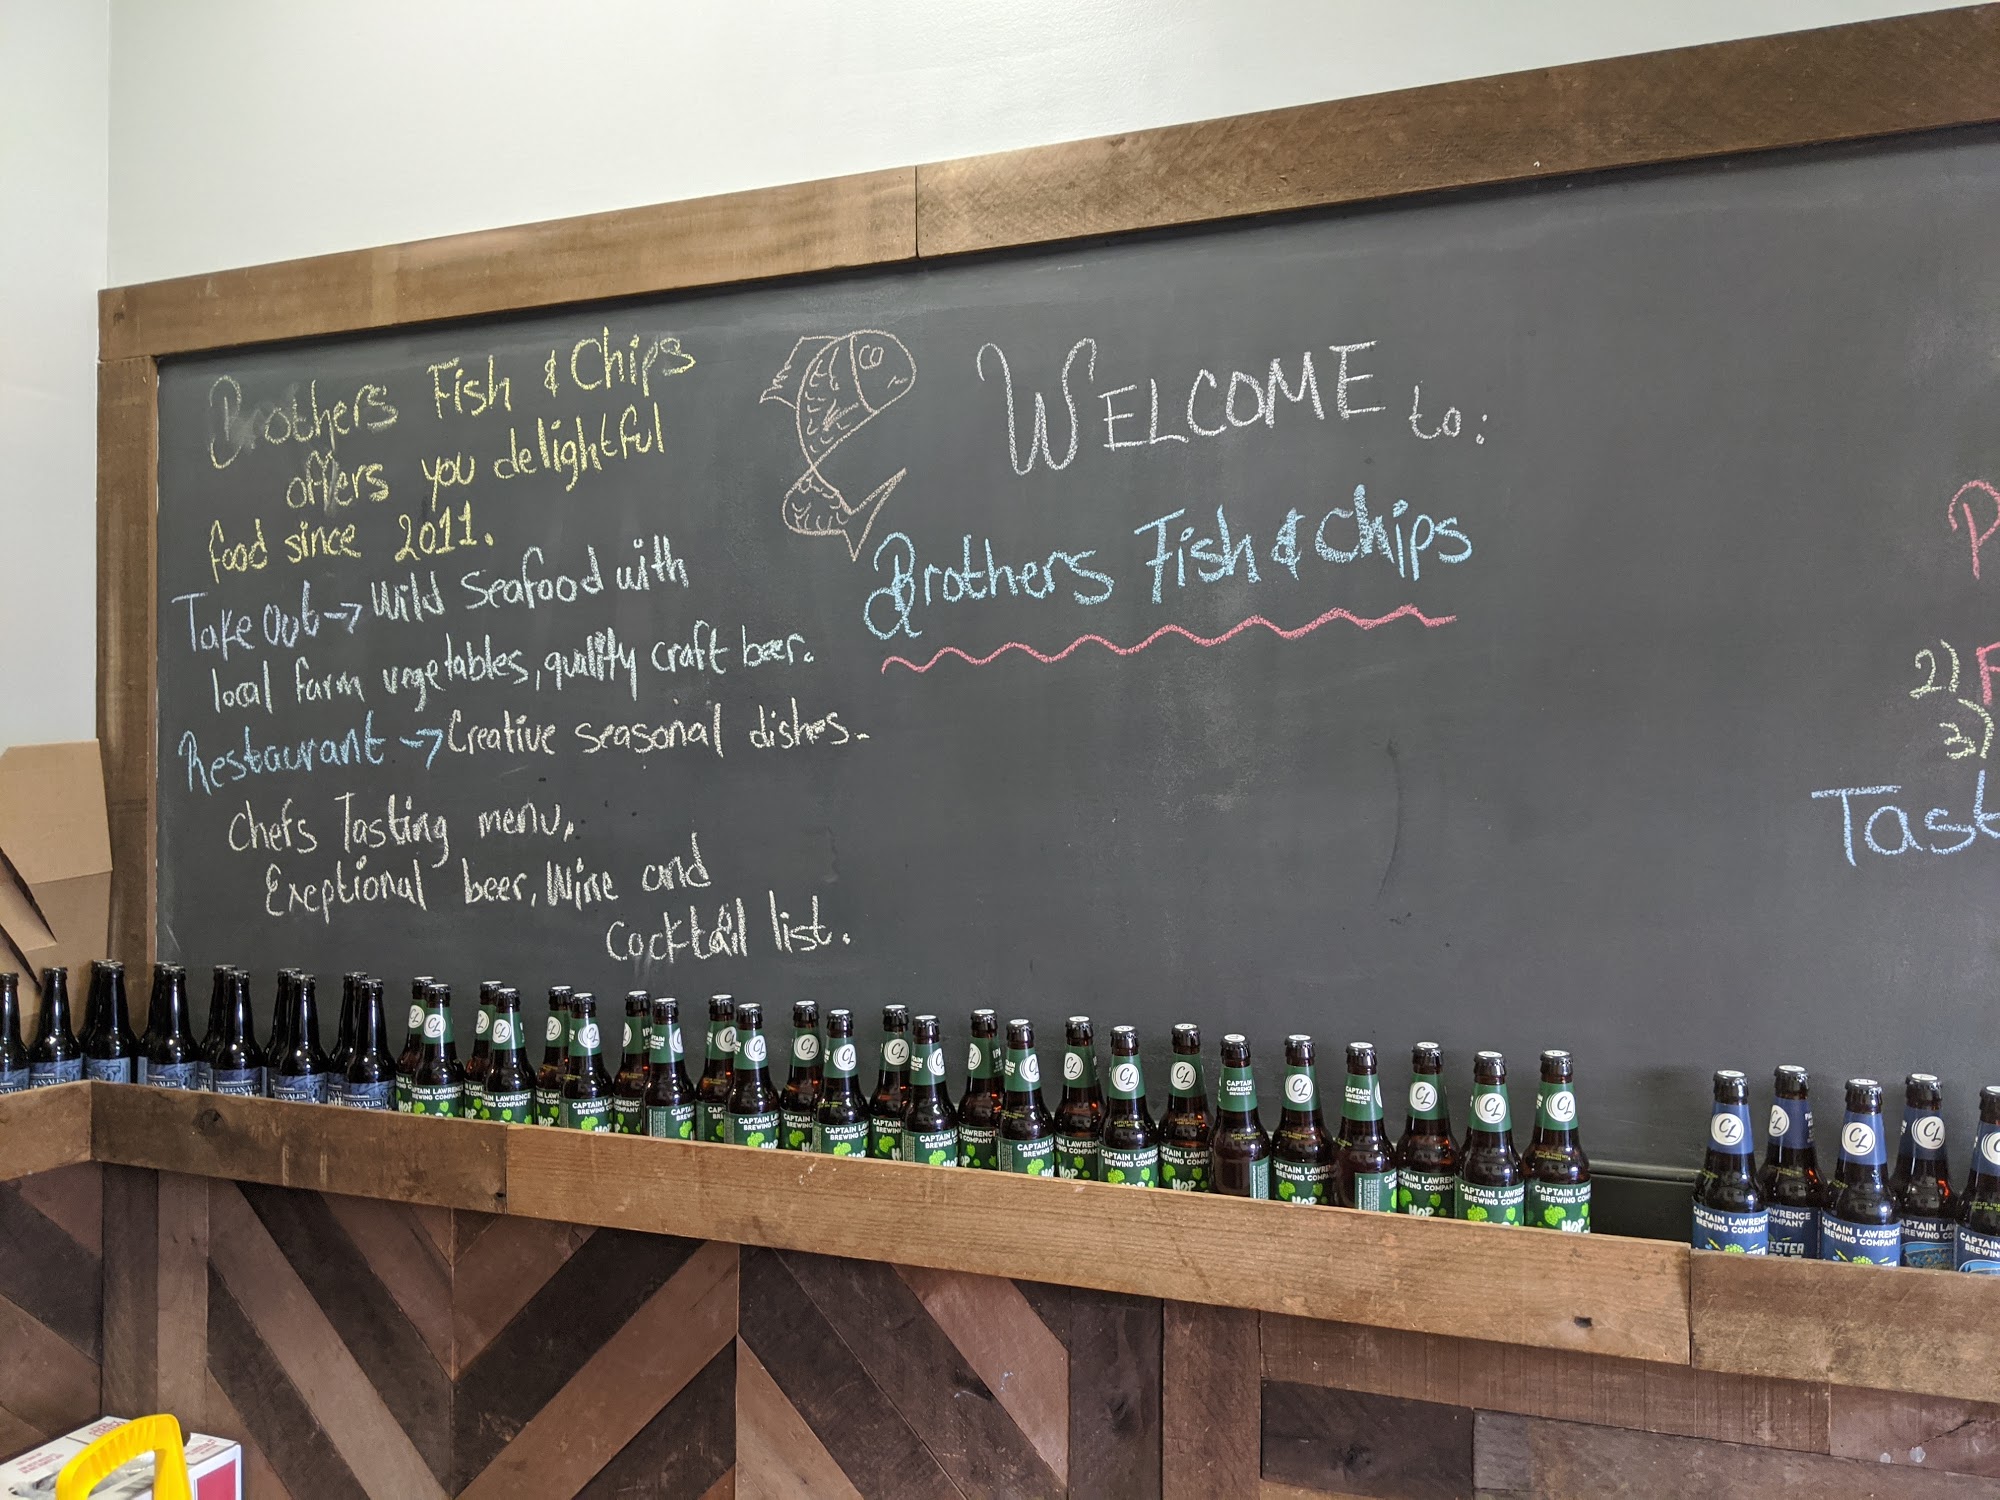 Brothers Fish & Chips
offers you delightful
food since 2011.
Take Out → Wild Seafood with
local farm vegetables, quality craft beer.
Restaurant → Creative seasonal dishes.
Chefs Tasting menu,
Exeptional beer, Wine and
Cocktail list.
WELCOME to:
Brothers Fish & Chips
2)
3)
CL
CAPTAIN LAWRENCE
BREWING COMPANY
HOP
CL
CAPTAIN LAWRENCE
BREWING COMPANY